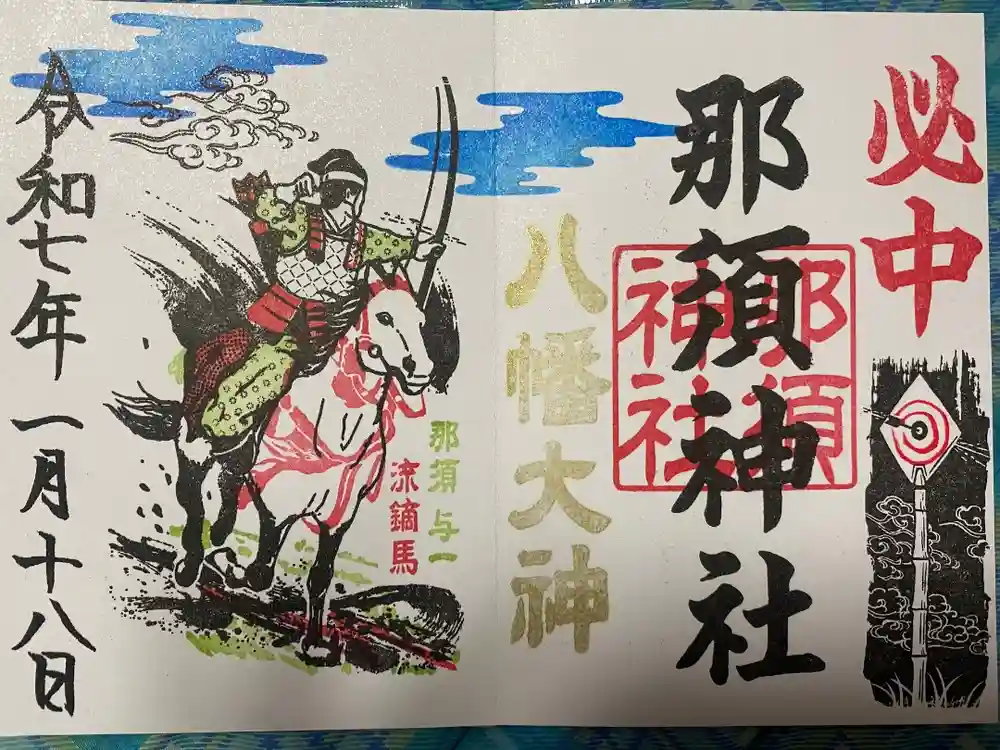 必中
那須神社
那須神社
八幡大神
那須与一
流鏑馬
令和七年一月十八日